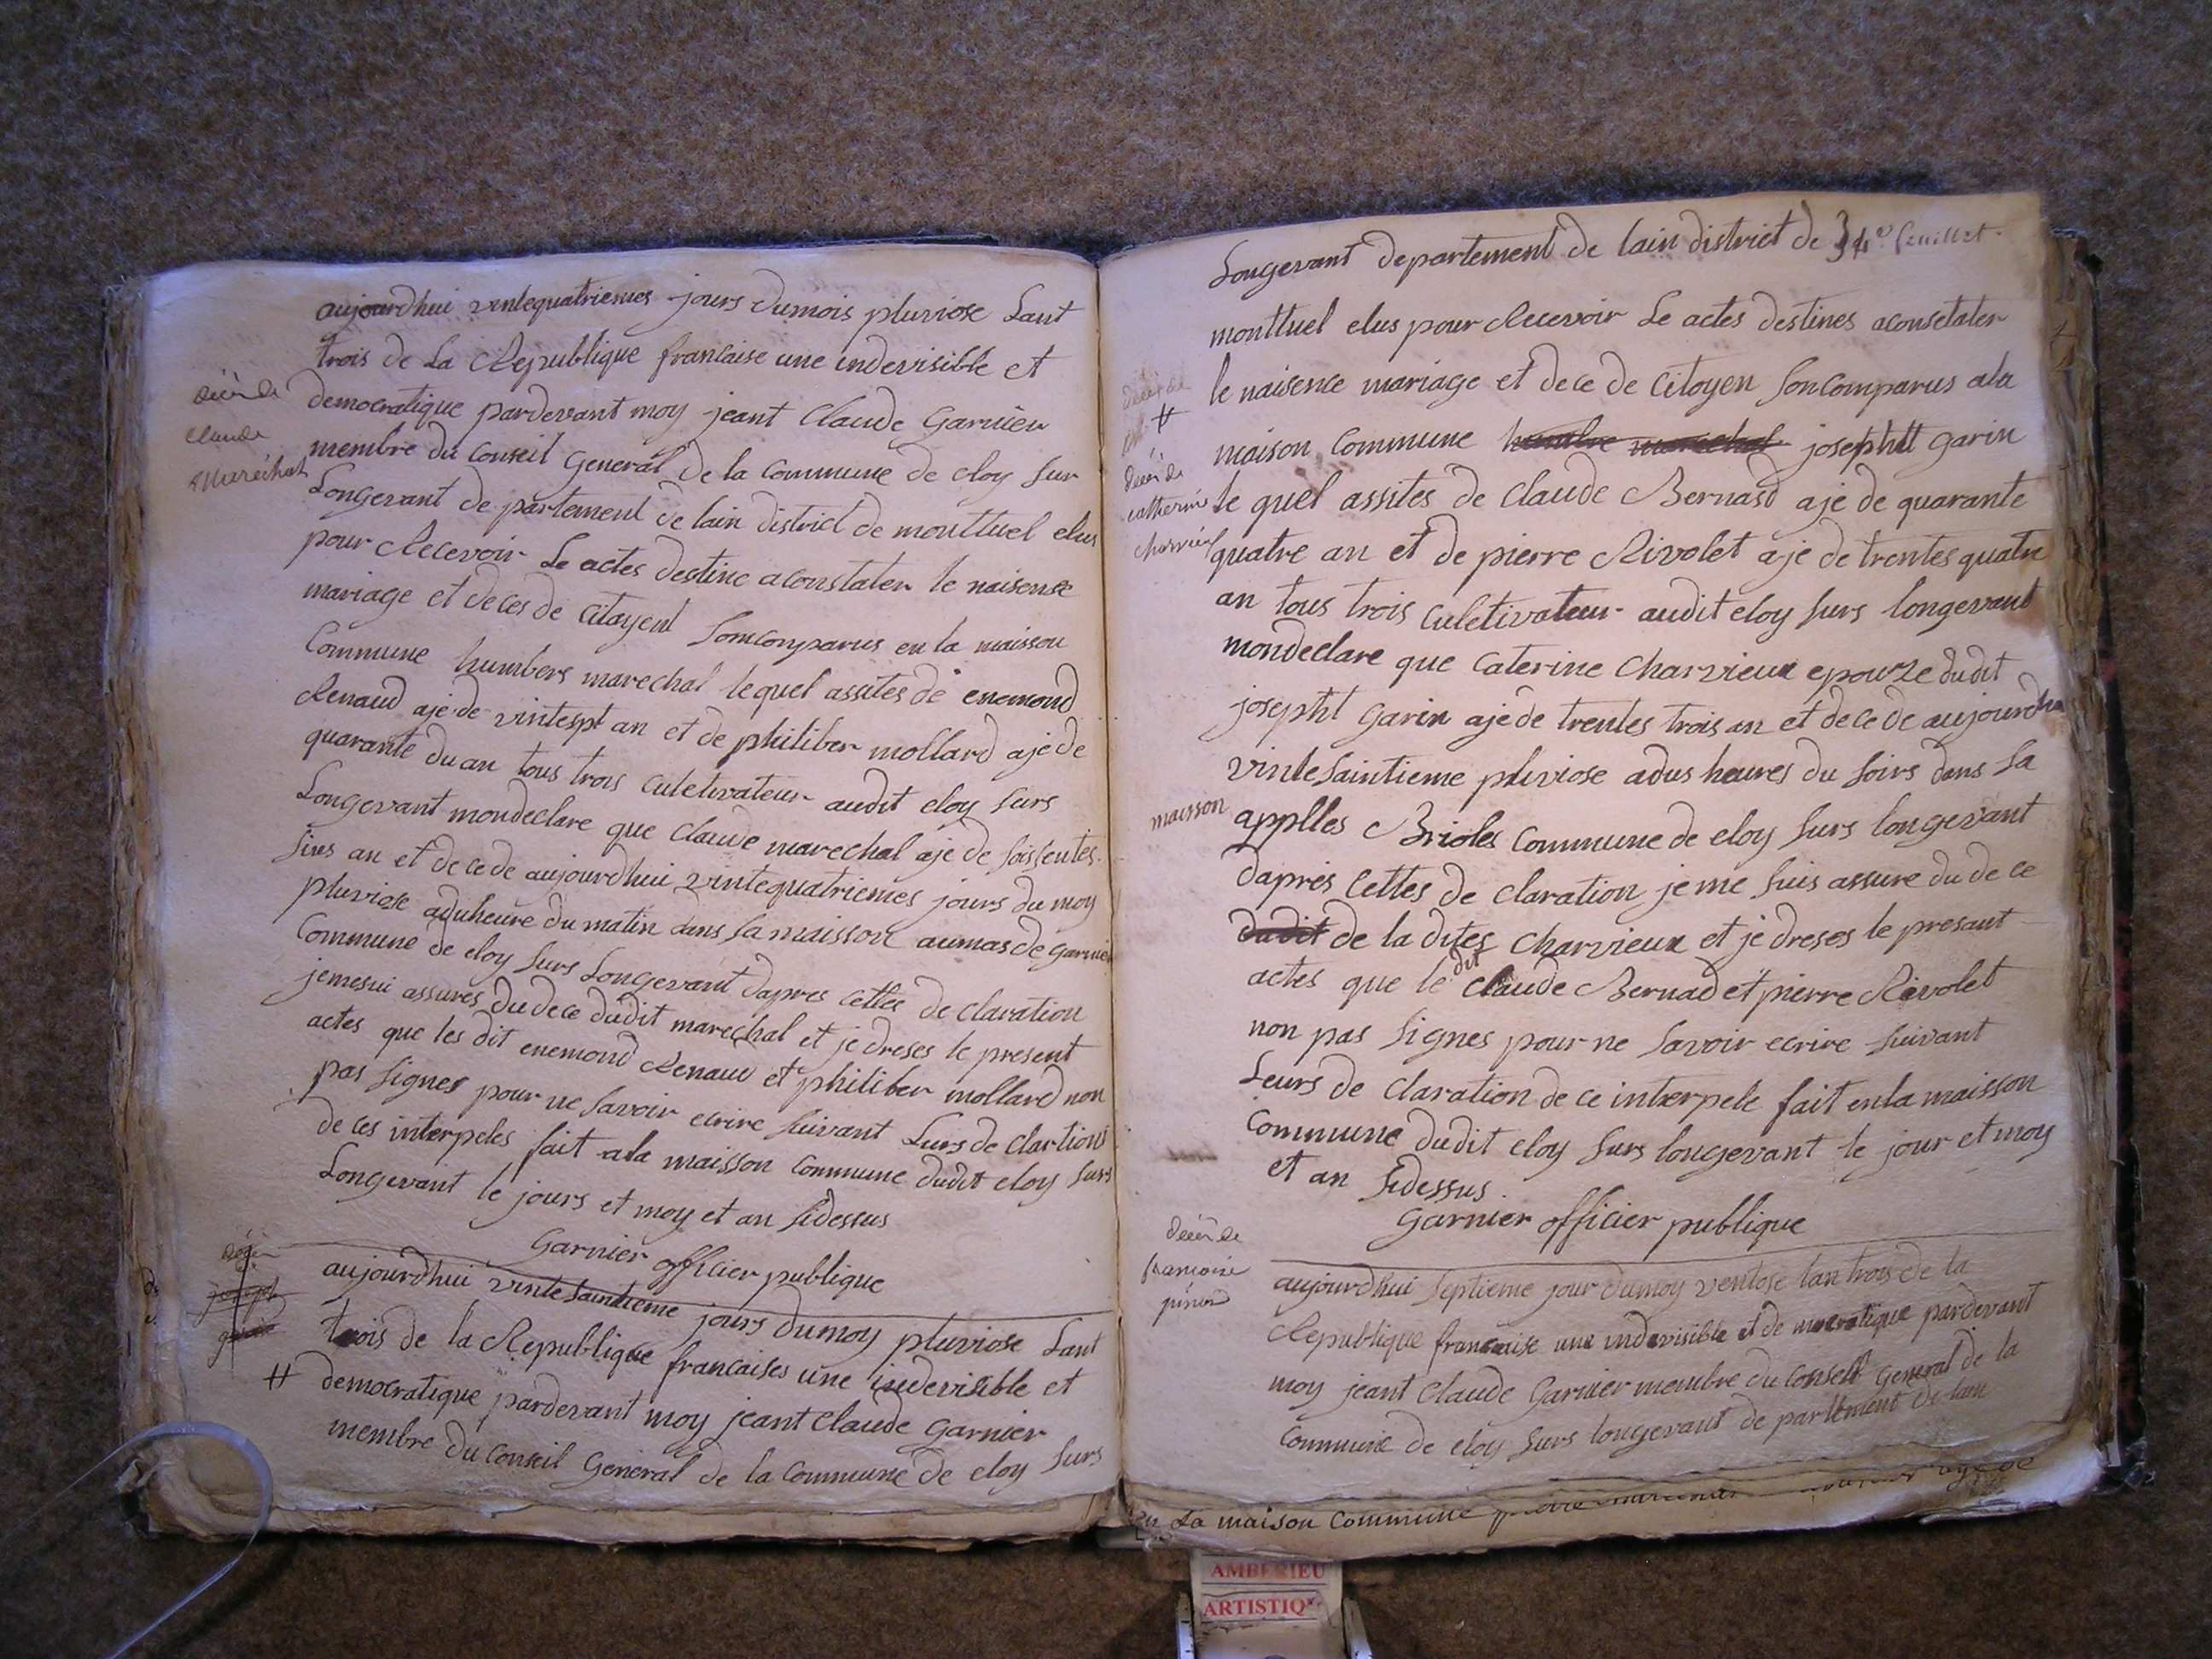 aujourdhui vintequatriemes jours dumois pluviose Lant
trois de La Republique francaise une indevisible et
décès de
claude
Maréchal
democratique pardevant moy jeant Claude Garnier
membre du Conseil General de la Commune de eloy sur
Longevant de partement de lain district de montluel elus
pour Recevoir Le actes destine aconstaler le naisense
mariage et deces de Citoyent Somconparus en la maisson
Commune humbers marechal lequel assites de enemond
Renaud aje de vintespt an et de philiber mollard aje de
quarante du an tous trois culetivateur audit eloy surs
Longevant mondeclare que Claude marechal aje de soissentes
sixs an et de cede aujourdhui vintequatriemes jours du moy
pluviose aduheure du matin dans sa maisson aumas de garnier
Commune de eloy surs Longevant dapres cettee de claration
jemesui assures du dece dudit marechal et je dreses le present
actes que les dit enemond Renaud et philiber mollard non
pas signes pour ne savoir ecrire suivant Lurs de clartions
de ces interpeles fait ala maisson commune dudit eloy surs
Longevant le jours et moy et an sidessus
Garnier officier publique
décès
joseph
garin
aujourdhui vinte saintieme jours dumoy pluviose Lant
trois de la Republique francaises une indevisible et
# democratique pardevant moy jeant Claude Garnier
membre du Conseil General de la Commune de eloy surs
Longevant departement de lain district de 34e feuillet
montluel elus pour Recevoir Le actes destines aconsetaler
le naisence mariage et dece de Citoyen Soncomparus ala
#
maison Commune humbre marechal josepht garin
décès de
catherine
charvieux
le quel assites de Claude Bernasd aje de quarante
quatre an et de pierre Rivolet aje de trentes quatre
an tous trois culetivateur audit eloy surs longevant
mondeclare que Caterine Charvieux epouze dudit
josepht garin aje de trentes trois an et de ce de aujourdhui
vinte saintieme pluviose adus heures du soirs dans sa
maisson
applles Brioles Commune de eloy surs longevant
dapres cettes de claration je me suis assure du de ce
dudit de la dites Charvieux et je dreses le presant
actes que le dit Claude Bernad et pierre Rivolet
non pas signes pour ne savoir ecrire suivant
Leurs de claration de ce interpele fait enla maisson
Commune dudit eloy surs longevant le jour et moy
et an sidessus.
Garnier officier publique
décès de
francoise
aujourdhui septieme jour dumoy ventose lan trois de la
Republique francaise une indevisible et de mocratique pardevant
moy jeant Claude Garnier membre du Conseil General de la
Commune de eloy surs longevant de partement de lain
La maison Commune
AMBERIEU
ARTISTIQ